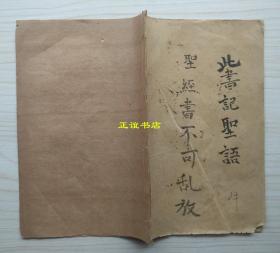 此書記聖語
聖經書不可乱放
正谊书店